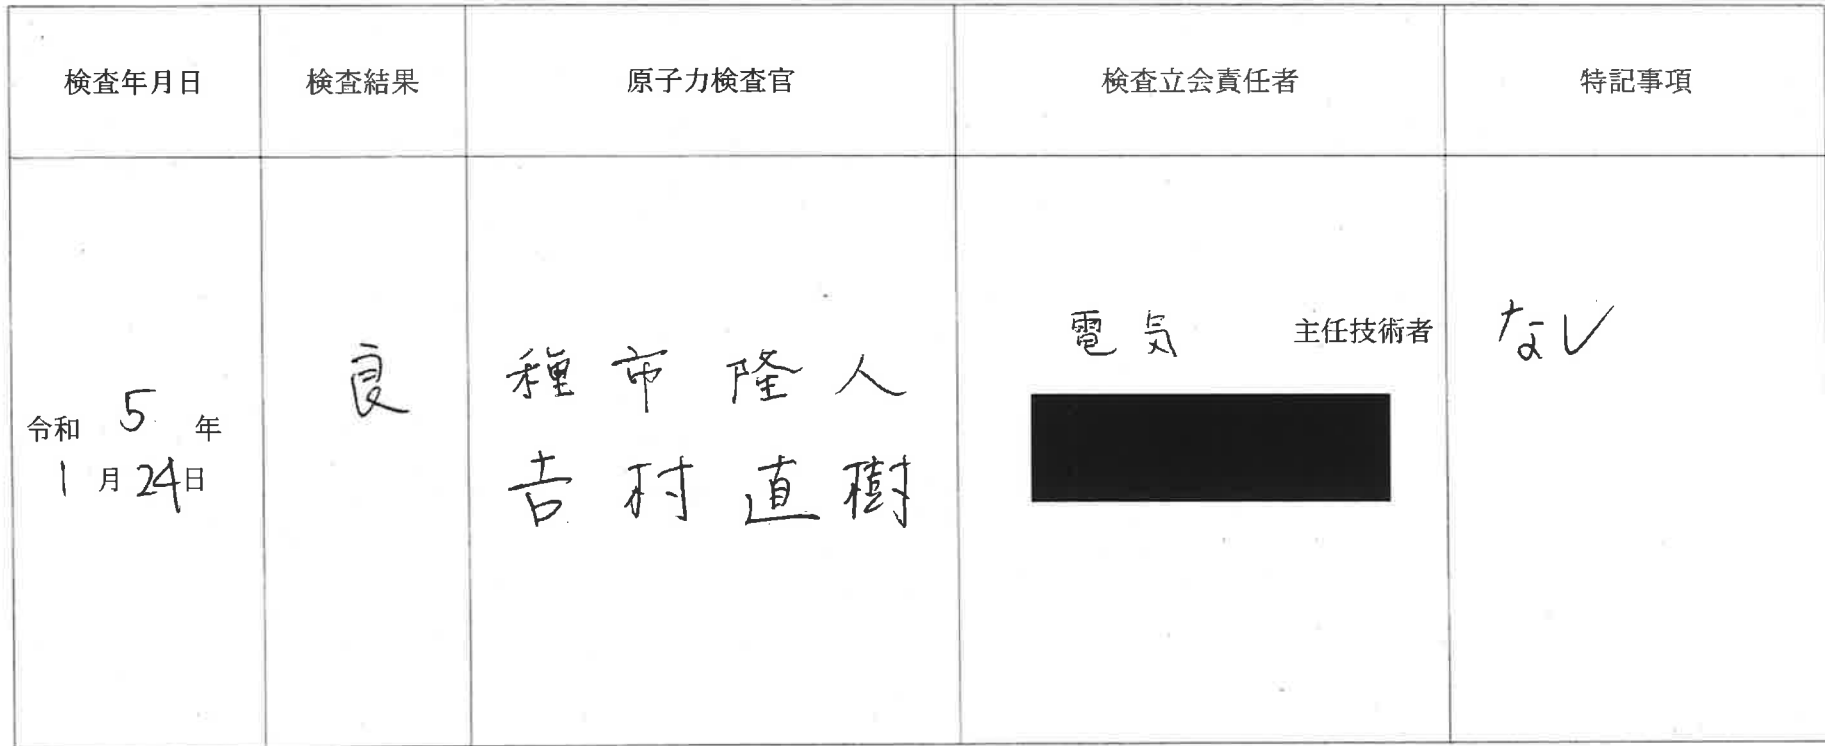 検査年月日 検査結果 原子力検査官 検査立会責任者 特記事項
令和 5 年
1 月 24 日
良
種市隆人
吉村直樹
電気 主任技術者
なし